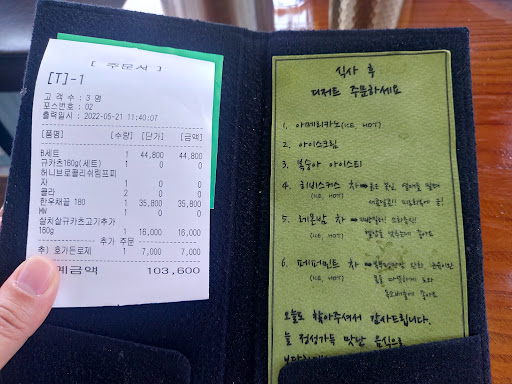 [ 주문서 ]
[T]-1
고 객 수 : 3 명
포스번호 : 02
출력일시 : 2022-05-21 11:40:07
[품명] [수량] [단가] [금액]
B세트 1 44,800 44,800
규카츠160g(세트) 1 0 0
허니브로콜리쉬림프피 1 0 0
자
콜라 2 0 0
한우채끝 180 1 35,800 35,800
MW 0 0
살치살규카츠고기추가 1 16,000 16,000
160g
추가 주문
추) 호가든로제 1 7,000 7,000
계금액 103,600
식사 후
디저트 주문하세요
1. 아메리카노(ICE, HOT)
2. 아이스크림
3. 복숭아 아이스티
4. 히비스커스 차
(ICE, HOT)
5. 레몬밤 차
(ICE, HOT)
6. 페퍼민트 차
(ICE, HOT)
오늘도 찾아주셔서 감사드립니다.
늘 정성가득 맛난 음식으로